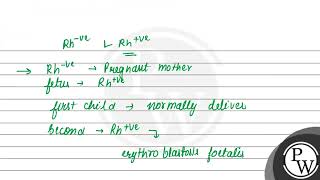 Rh-ve L Rh+ve
→ Rh-ve → Pregnant mother
fetus → Rh+ve
first child → normally deliver
Second → Rh+ve ↴
erythroblastosis foetalis
P
W